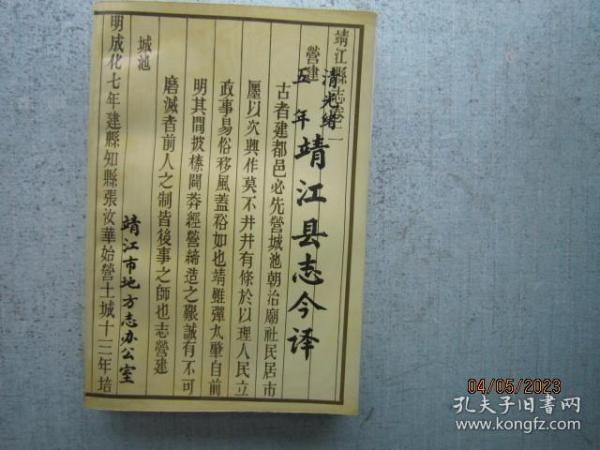 靖江縣志卷二
營建
清光绪
五年靖江县志今译
古者建都邑必先營城池朝治廟社民居市
廛以次興作莫不井井有條於以理人民立
政事易俗移風蓋裕如也靖雖彈丸肇自前
明其間披榛闢莽經營締造之艱誠有不可
磨滅者前人之制皆後事之師也志營建
城池
靖江市地方志办公室
明成化七年建縣知縣張汝華始營土城十三年培
04/05/2023
孔夫子旧书网
www.kongfz.com